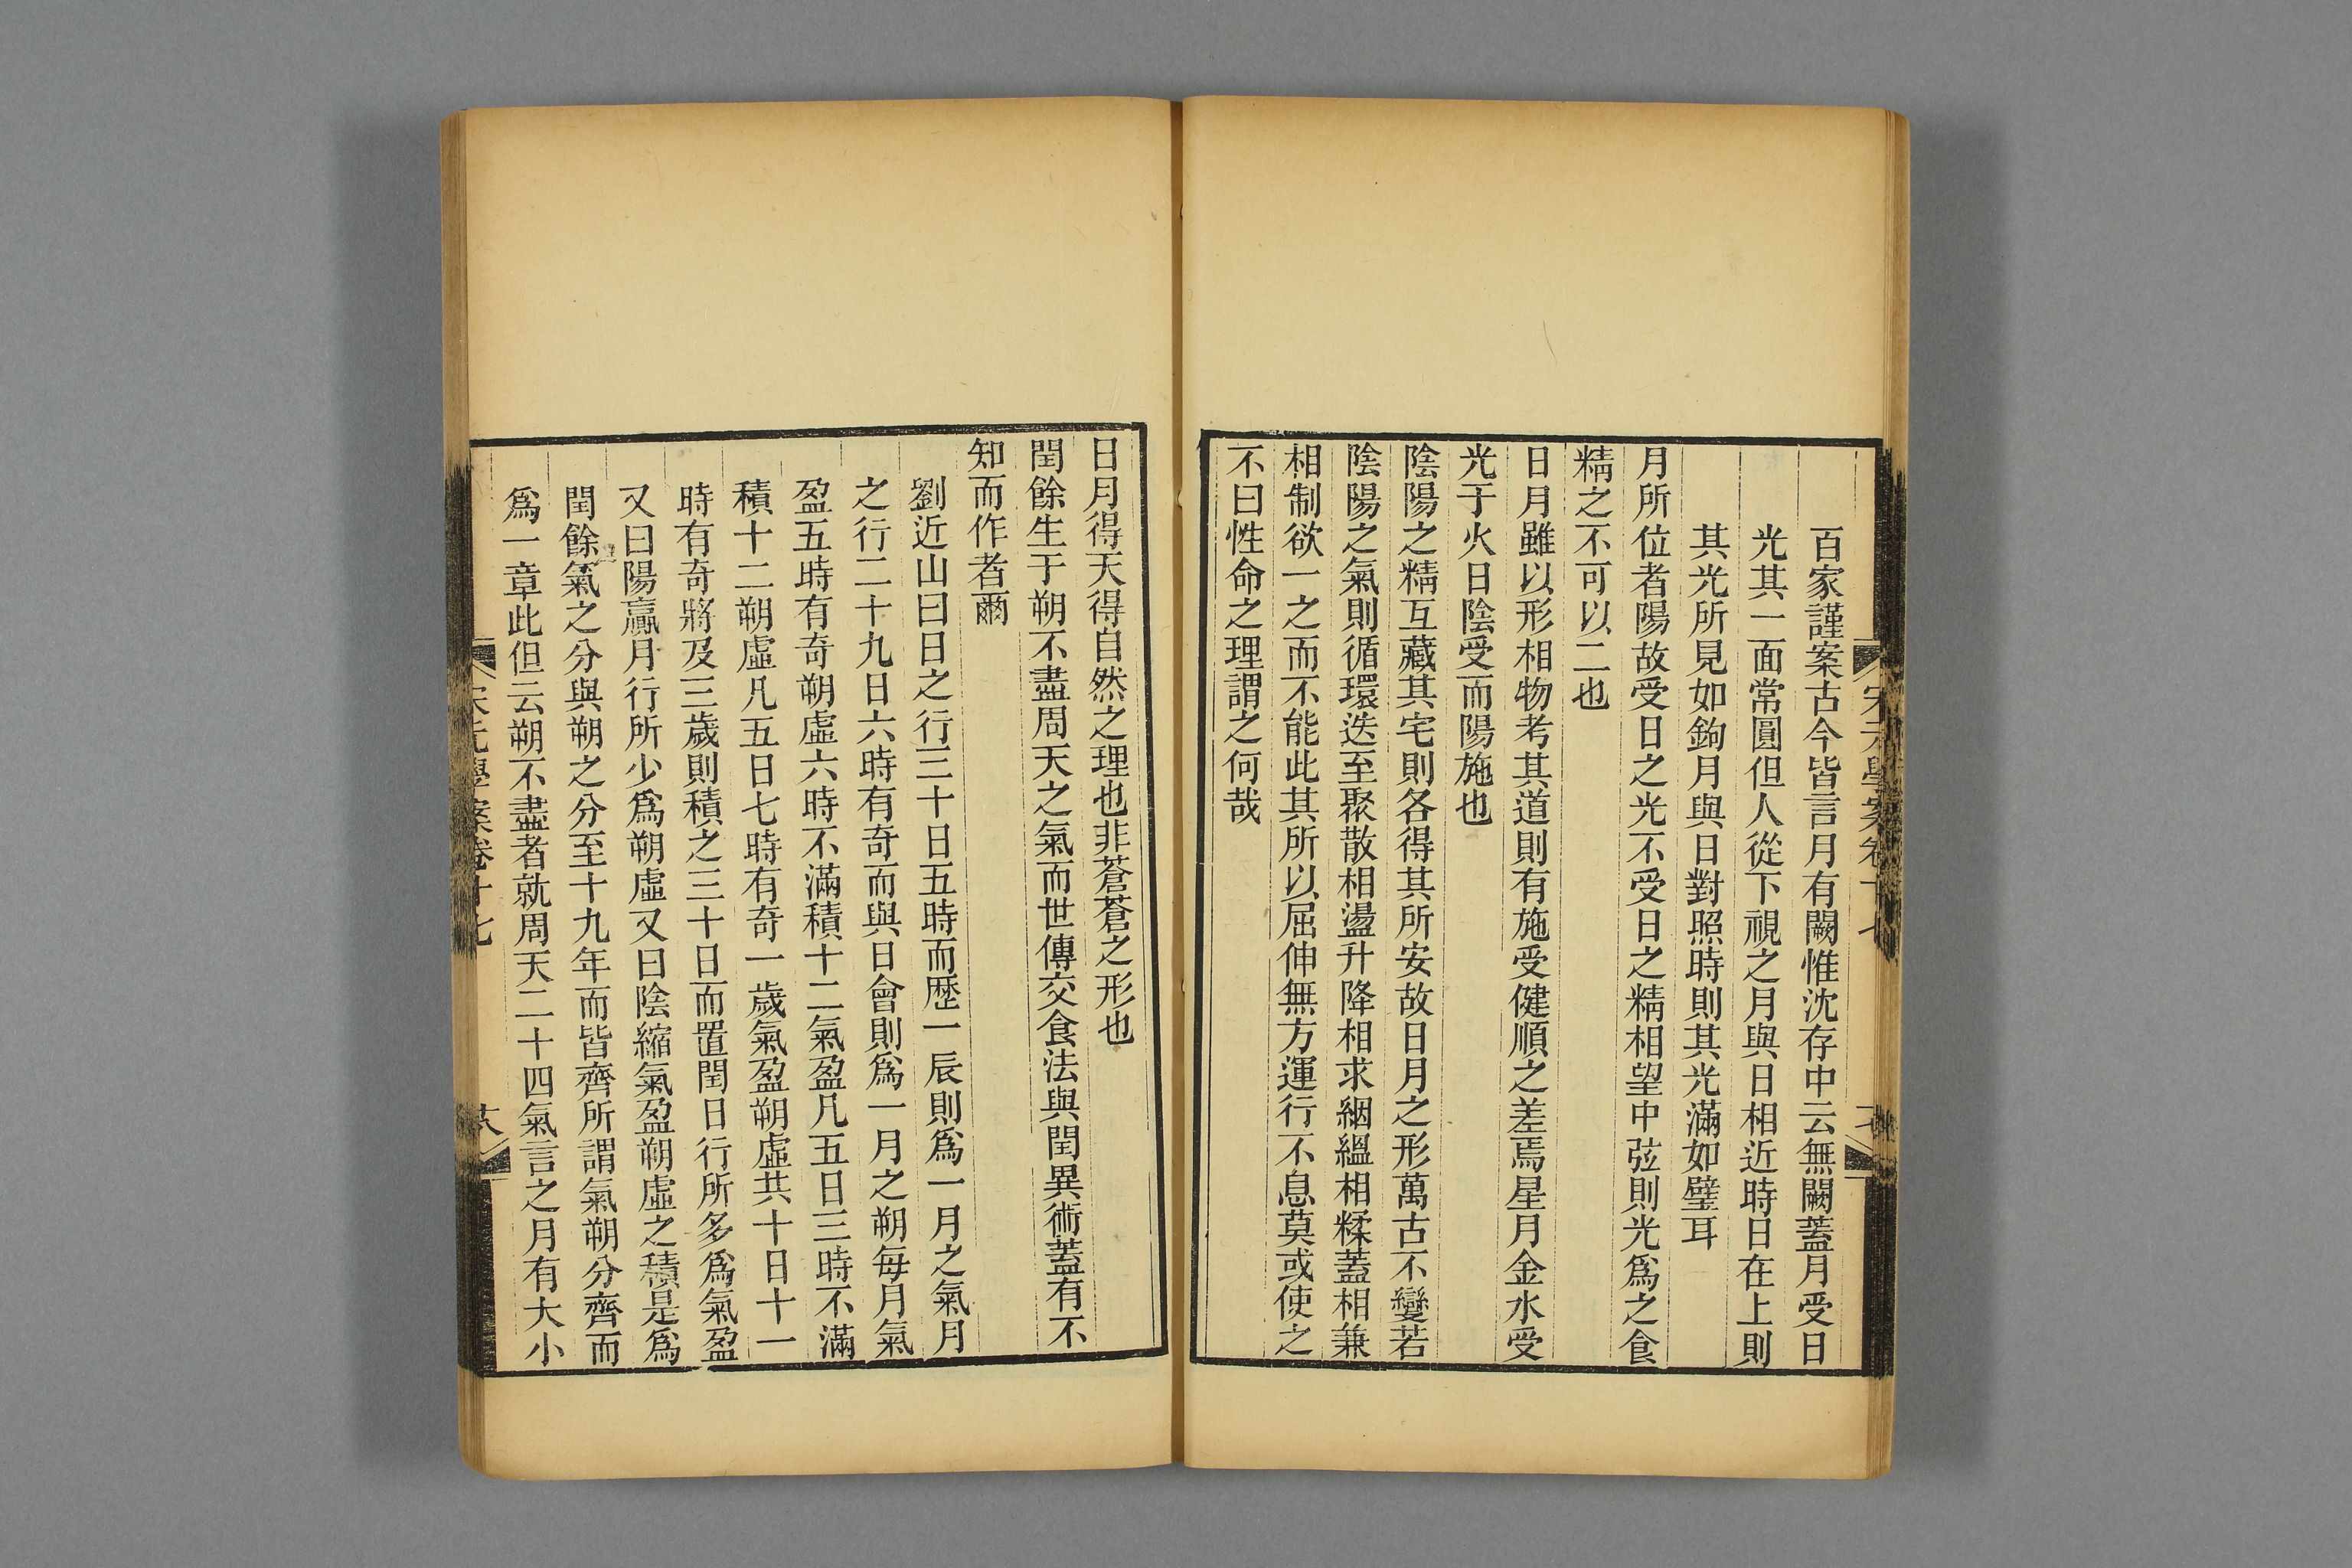 百家謹案古今皆言月有闕惟沈存中云無闕蓋月受日
光其一面常圓但人從下視之月與日相近時日在上則
其光所見如鉤月與日對照時則其光滿如璧耳
月所位者陽故受日之光不受日之精相望中弦則光爲之食
精之不可以二也
日月雖以形相物考其道則有施受健順之差焉星月金水受
光于火日陰受而陽施也
陰陽之精互藏其宅則各得其所安故日月之形萬古不變若
陰陽之氣則循環迭至聚散相盪升降相求絪縕相糅蓋相兼
相制欲一之而不能此其所以屈伸無方運行不息莫或使之
不曰性命之理謂之何哉
日月得天得自然之理也非蒼蒼之形也
閏餘生于朔不盡周天之氣而世傳交食法與閏異術蓋有不
知而作者爾
劉近山曰日之行三十日五時而歷一辰則爲一月之氣月
之行二十九日六時有奇而與日會則爲一月之朔每月氣
盈五時有奇朔虛六時不滿積十二氣盈凡五日三時不滿
積十二朔虛凡五日七時有奇一歲氣盈朔虛共十日十一
時有奇將及三歲則積之三十日而置閏日行所多爲氣盈
又曰陽贏月行所少爲朔虛又曰陰縮氣盈朔虛之積是爲
閏餘氣之分與朔之分至十九年而皆齊所謂氣朔分齊而
爲一章此但云朔不盡者就周天二十四氣言之月有大小
宋元學案卷十七